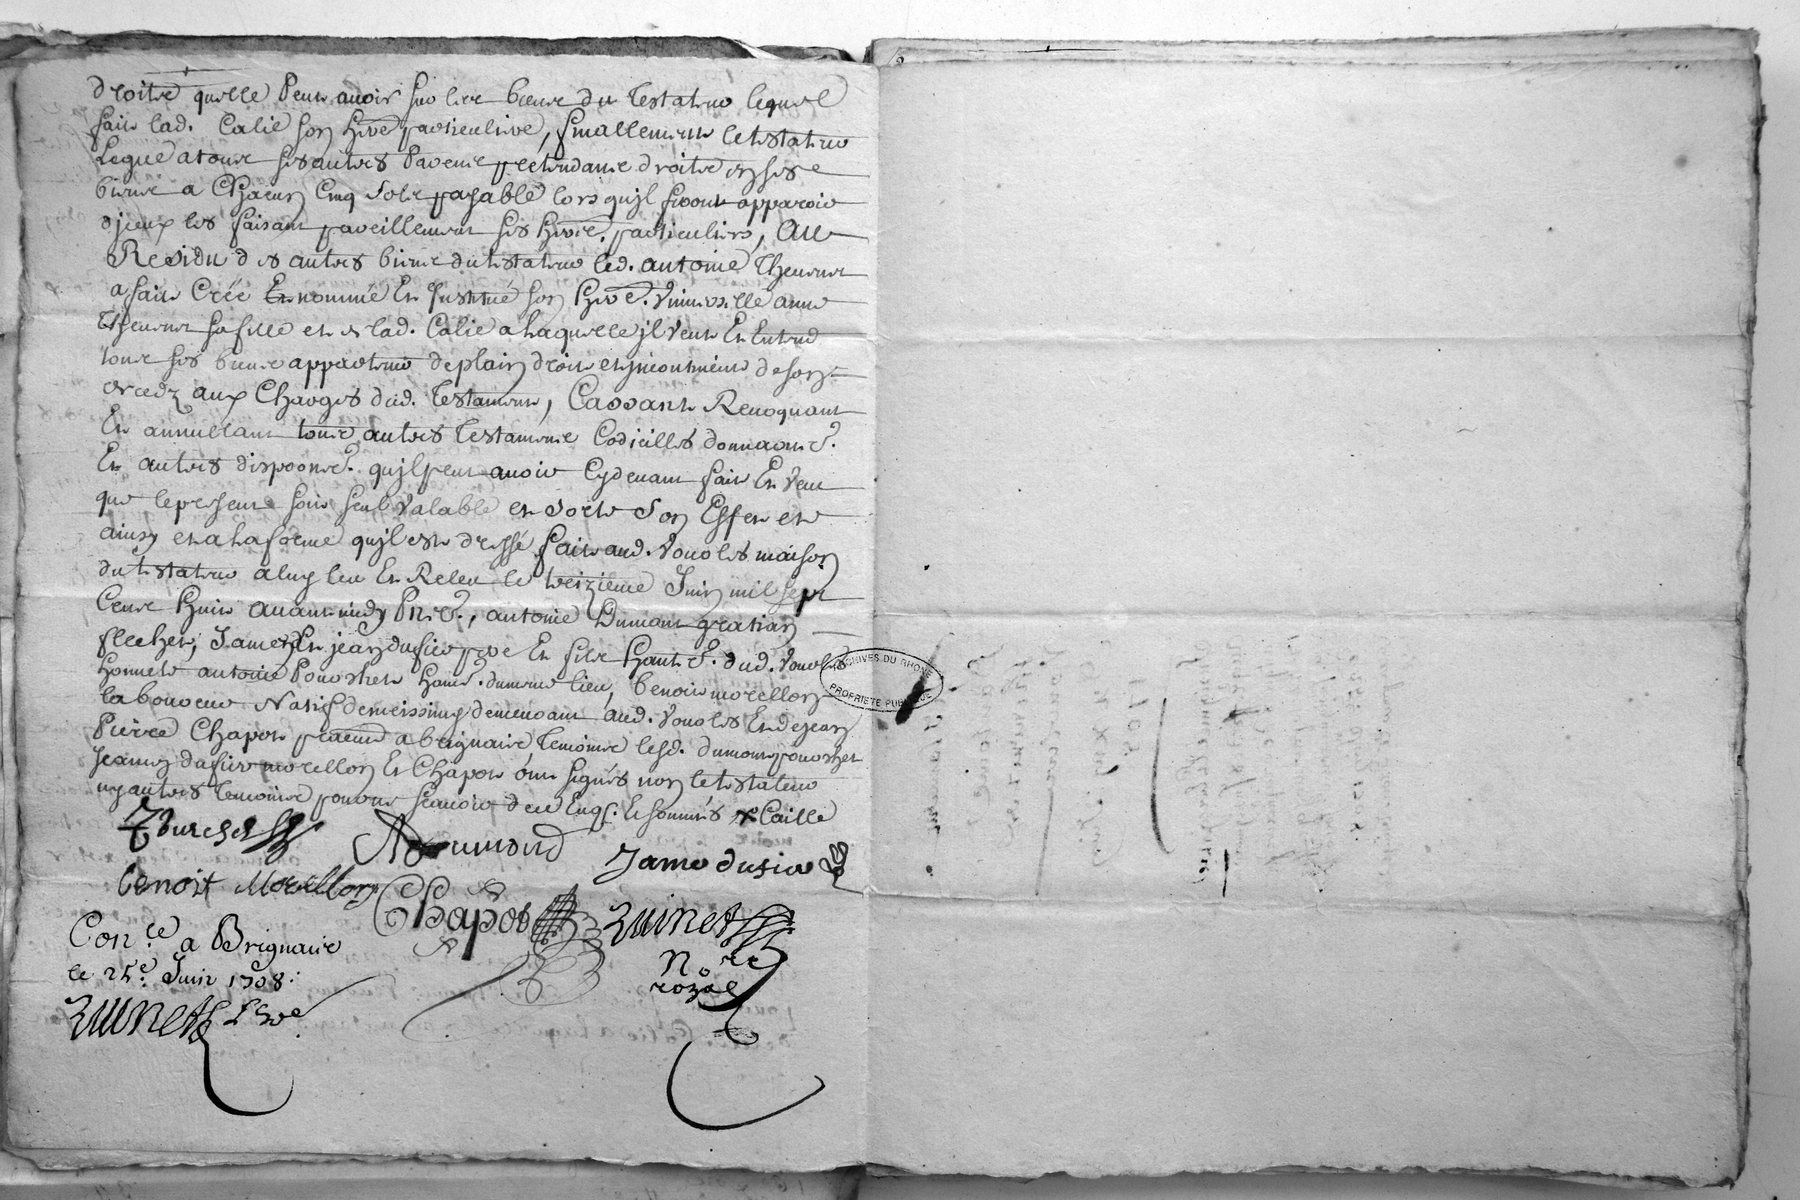 droitz quelle peut avoir sur les biens du testateur lequel
fait lad. Calie son here. particuliere, finallement le testateur
legue a tous ses autres parens pretendans droitz en ses
biens a chacun cinq solz payable lors qu'jl feront apparoir
d'jceux les faisant pareillement ses here. particuliers, Au
Residu des autres biens du testateur led. antoine Thevenet
a fait Créé Et nommé Et Institué son here. Vniverselle anne
Thevenet sa fille et de lad. Calie a laquelle jl veut Et Entend
tous ses biens appartenir de plain droit et jncontinent deson
decedz aux Charges dud. Testament, Cassant Revoquant
Et annullant tous autres Testamens Codicilles donnaons.
Et autres dispoons. qu'jl peut avoir Cydevant fait Et Veut
que le present soit seul Valable et sorte Son Effet et
ainsy et a la forme qu'jl est dressé fait aud. Vourles maison
du testateur a luy leu Et Releu le treizieme Juin mil sept
Cens huit avant midy Pnt., antoine Dumont gratian
flechet, Jame Et jean dufieu pere Et filz hant. dud. Vourles
honnete antoine Pourchet hant. du meme lieu, benoit morellon
laboureur Natif de meissimy demeurant aud. Vourles Et de jean
Pierre Chapot a brignaire Temoins lesd. dumont pourchet
Jame dufieu morellon Et Chapot ont signés non le testateur
ny autres temoins pour ne scavoir de ce Enq. Et sommés
Dumond
Jame dufieu
benoit Morellon
Chapot
Con.le a Brignaire
le 25e. Juin 1708.
No re
royal
ARCHIVES DU RHONE
PROPRIETE PUBLIQUE